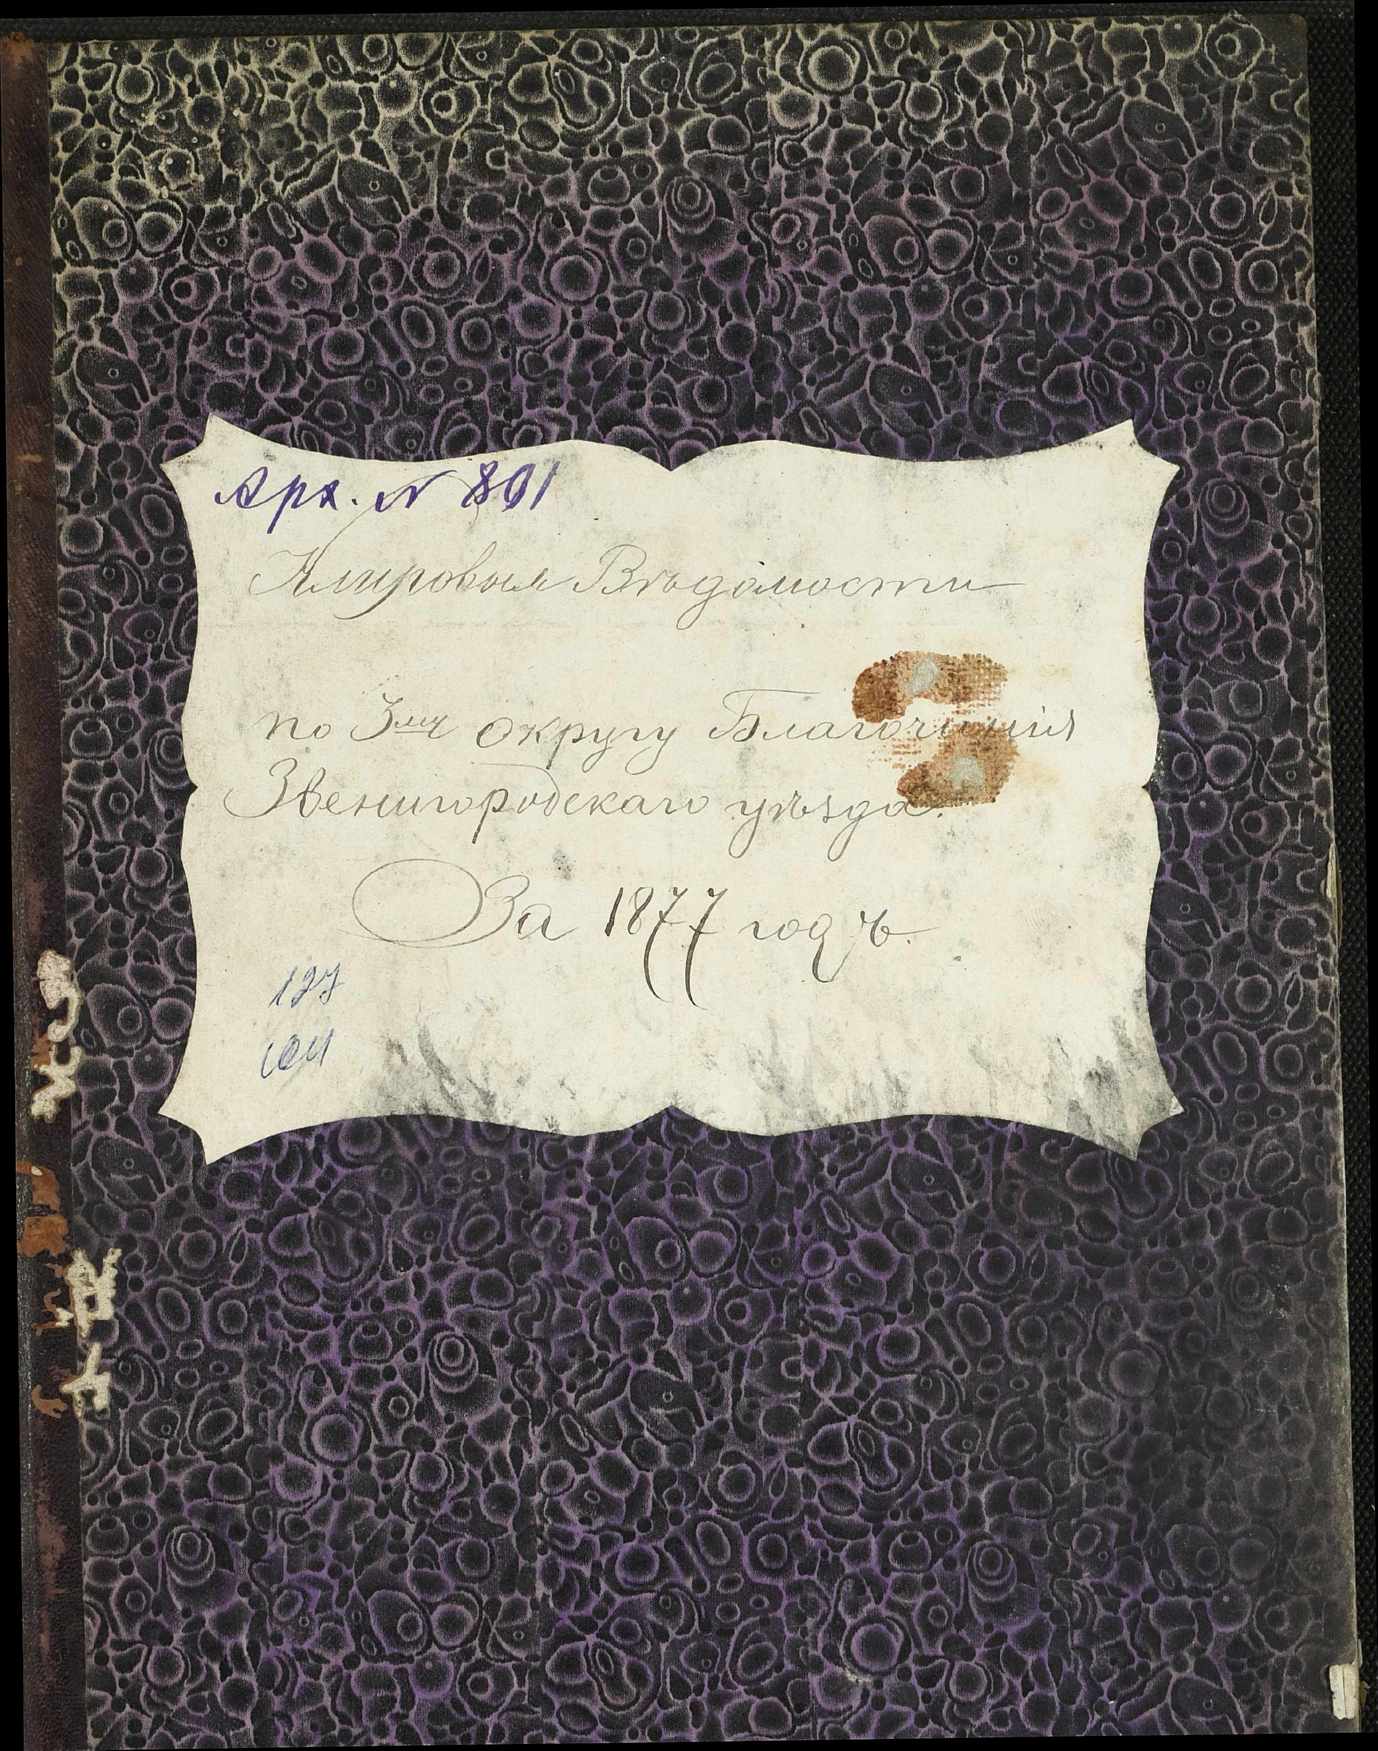 Арх. № 801
Клировыя Вѣдомости
по 3му округу Благочинія
Звенигородскаго уѣзда.
За 1877 годъ.
127